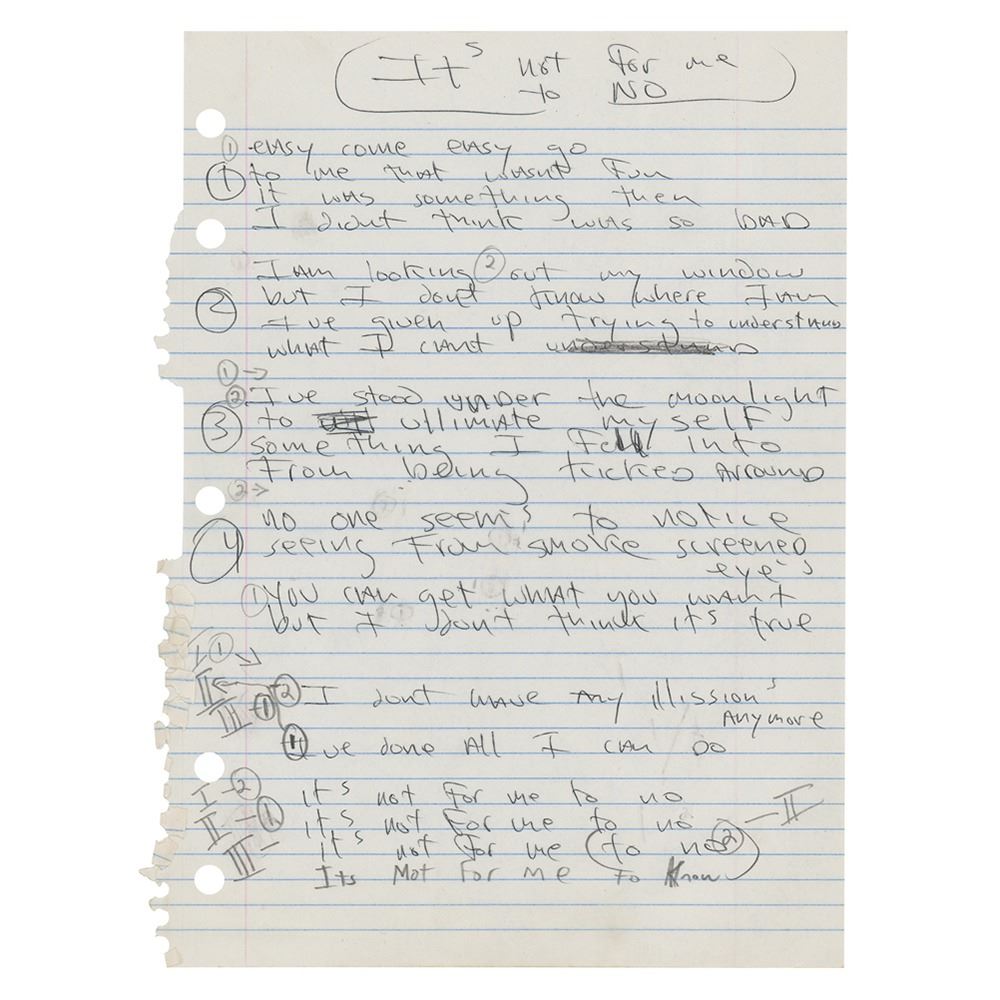 Its not for me
to NO
① easy come easy go
① to me that wasnt Fun
it was something then
I didnt think was so bAD
I am looking ② out my window
② but I dont know where I am
I ve given up trying to understand
what I cant understand
① →
② I've stood under the moonlight
③ to ullimate my self
something I Fell into
From being kicked Arround
② →
no one seem's to notice
④ seeing From smoke screened
eye's
① You can get what you want
but I don't think it's true
I ① →
II ← ② I dont have Any illission's
III ① Anymore
I've done All I can Do
I - ② it's not For me to no
II - ① it's not For me to no - II
III - it's not For me (to no ②)
Its Not For me To Know